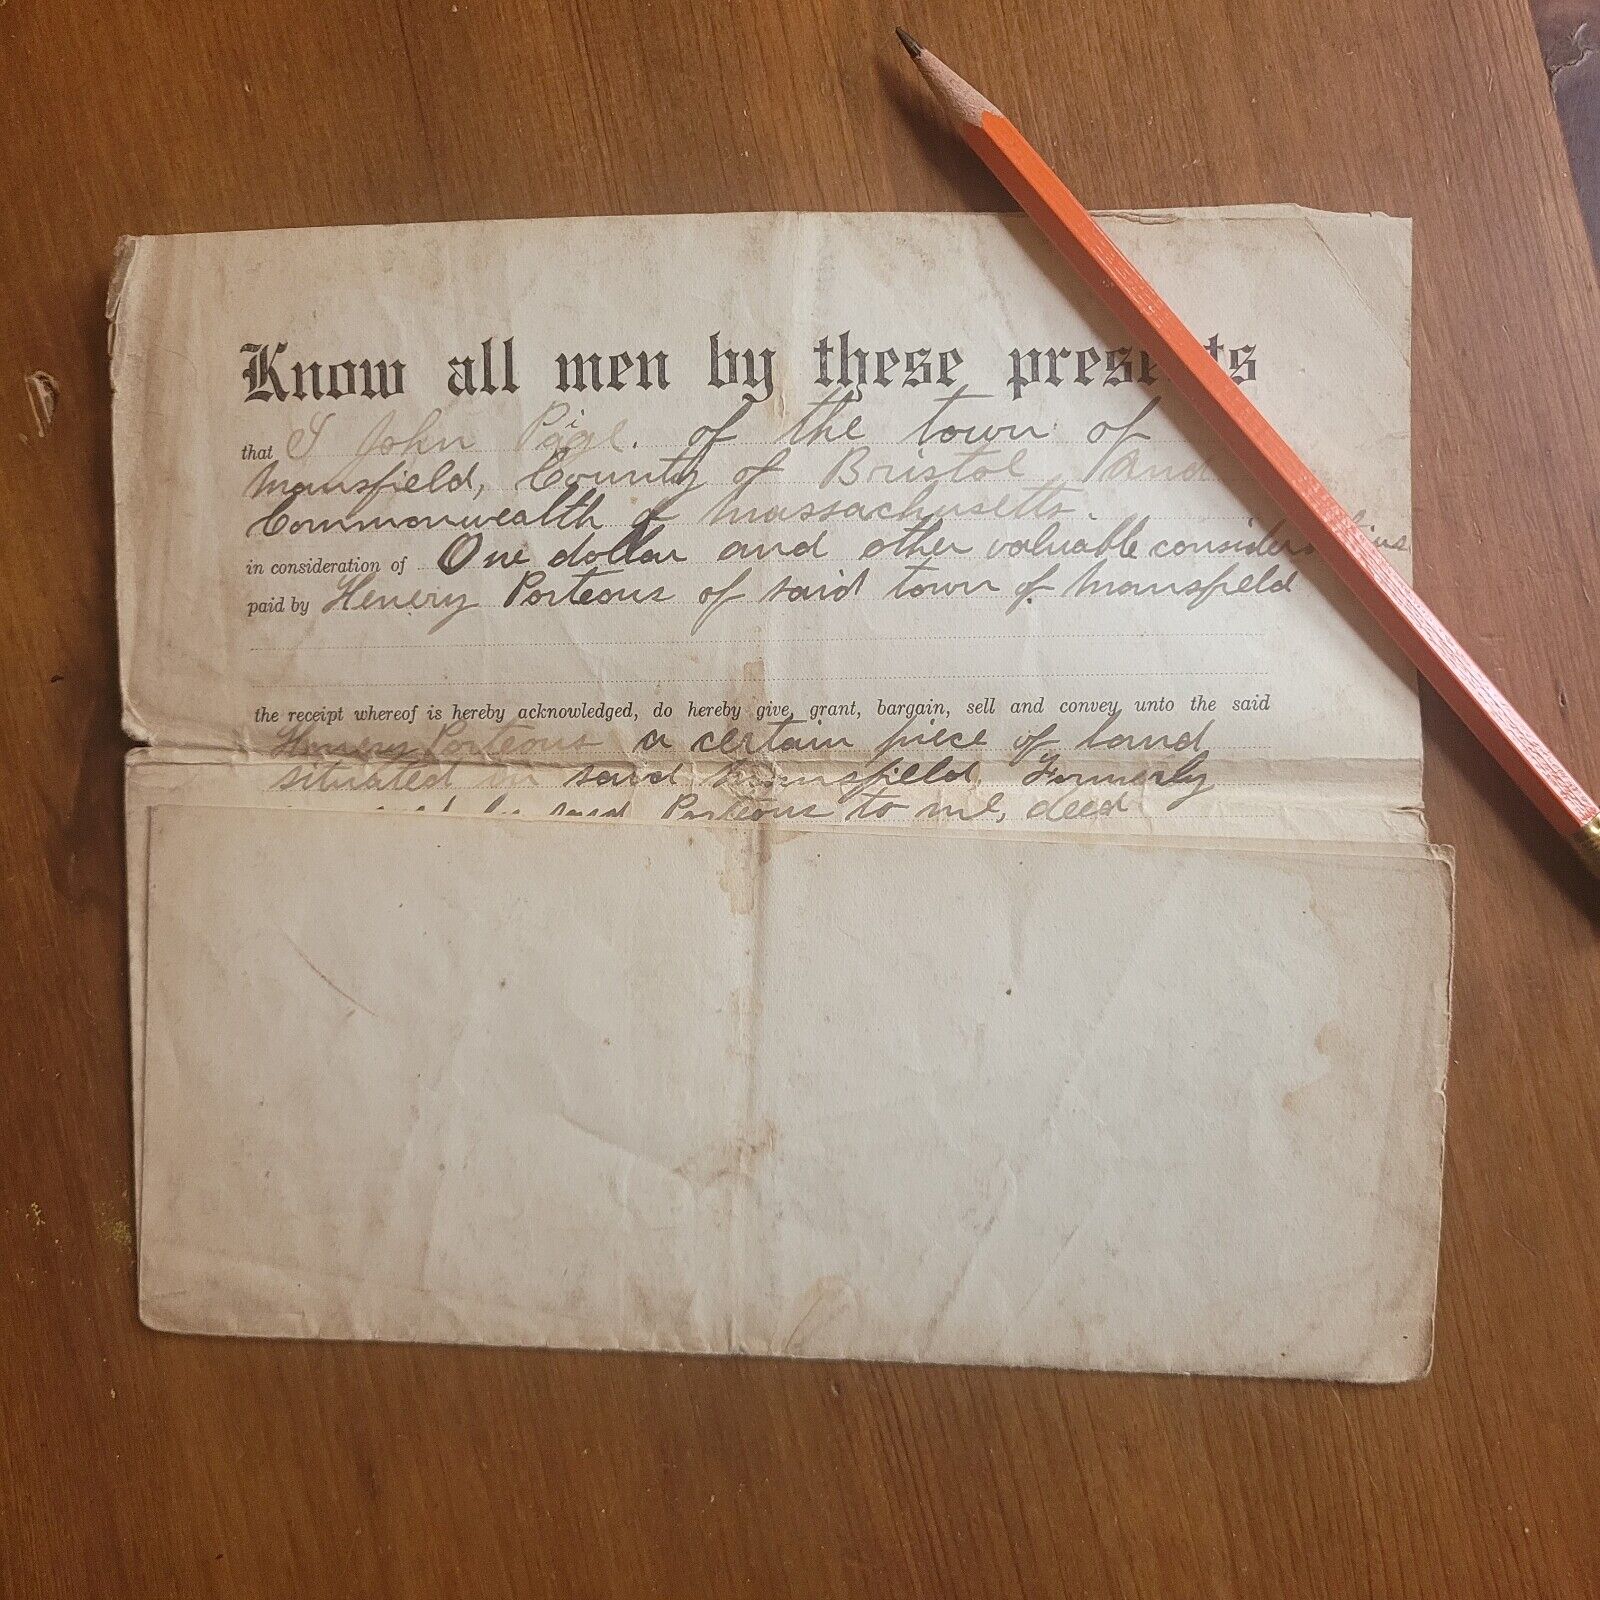 Know all men by these presents
that I John Page. of the town of
Mansfield, County of Bristol and
Commonwealth of Massachusetts.
in consideration of One dollar and other valuable considerations
paid by Henery Porteous of said town of Mansfield
the receipt whereof is hereby acknowledged, do hereby give, grant, bargain, sell and convey unto the said
Henery Porteous a certain piece of land
situated in said Mansfield, Formerly
by said Porteous to me, deed